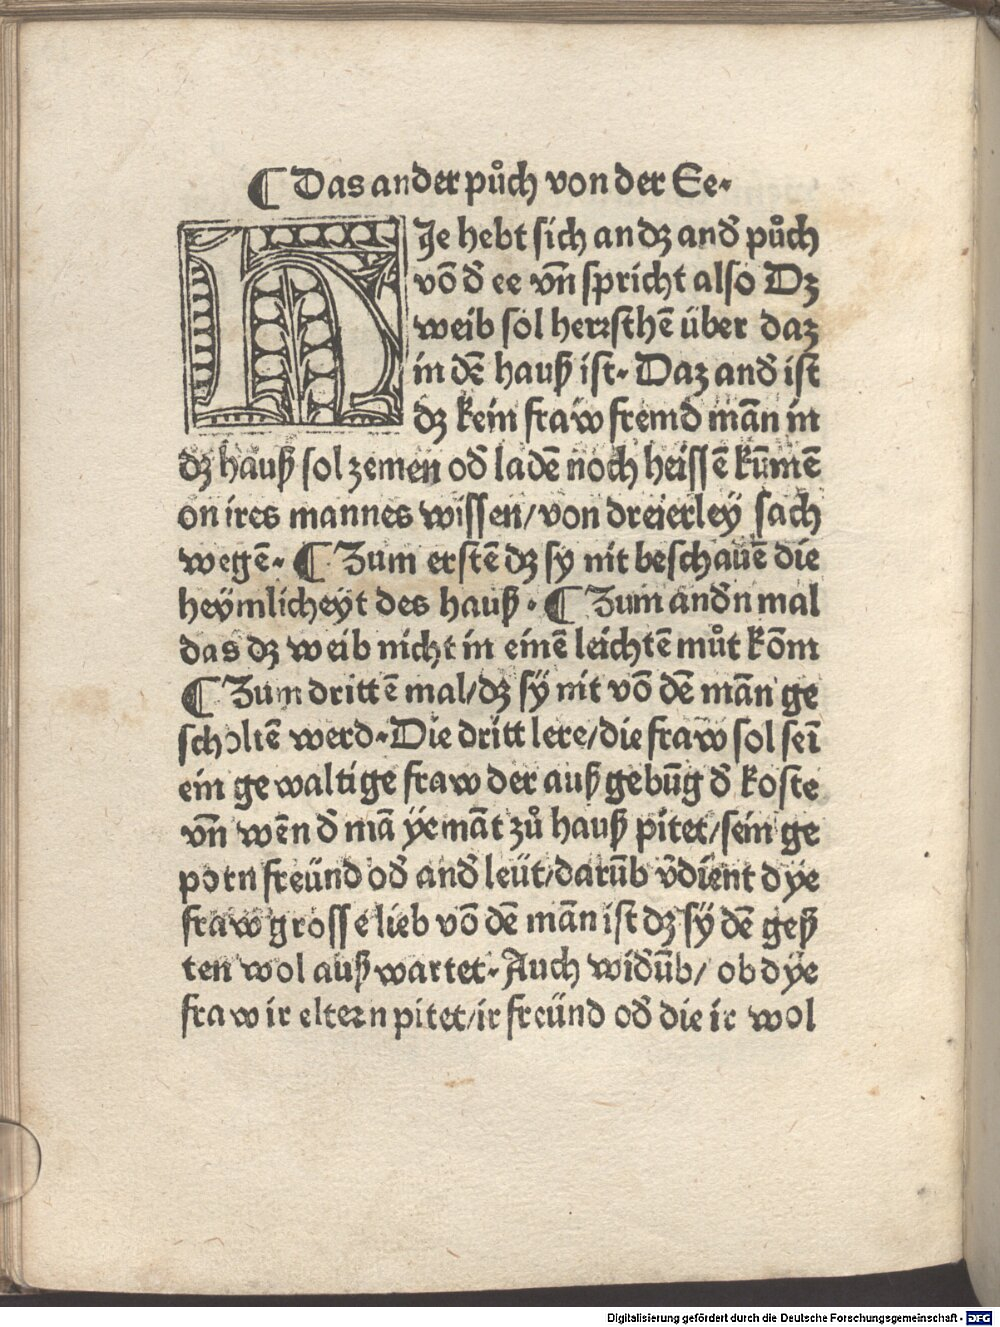 ¶ Das ander půch von der Ee⸗
HJe hebt sich an dꝫ and̕ půch
võ d̕ ee vn̄ spricht also Dꝫ
weib sol herꝛschē über daz
in dē hauß ist⸗ Daz and̕ ist
dꝫ kein fraw fremd mān in
dꝫ hauß sol zemen od̕ ladē noch heissē kūmē
on ires mannes wissen/ von dreierley sach
wegē⸗ ¶ Zum erstē dꝫ sy nit beschauē die
heÿmlicheyt des hauß⸗ ¶ Zum and̕n mal
das dꝫ weib nicht in einē leichtē můt kōm
¶ Zum drittē mal/ dꝫ sÿ nit võ dē mān ge
scholtē werd⸗ Die dritt lere/ die fraw sol seī
ein gewaltige fraw der außgebūg d̕ koste
vn̄ wēn d̕ mā ÿemāt zů hauß pitet/ sein ge
poꝛn freünd od̕ and̕ leüt/ darūb v̕dient dye
fraw grosse lieb võ dē mān ist dꝫ sÿ dē geß
ten wol außwartet⸗ Auch wid̕ūb/ ob dÿe
fraw ir elterꝛn pitet/ ir freünd od̕ die ir wol
Digitalisierung gefördert durch die Deutsche Forschungsgemeinschaft - DFG